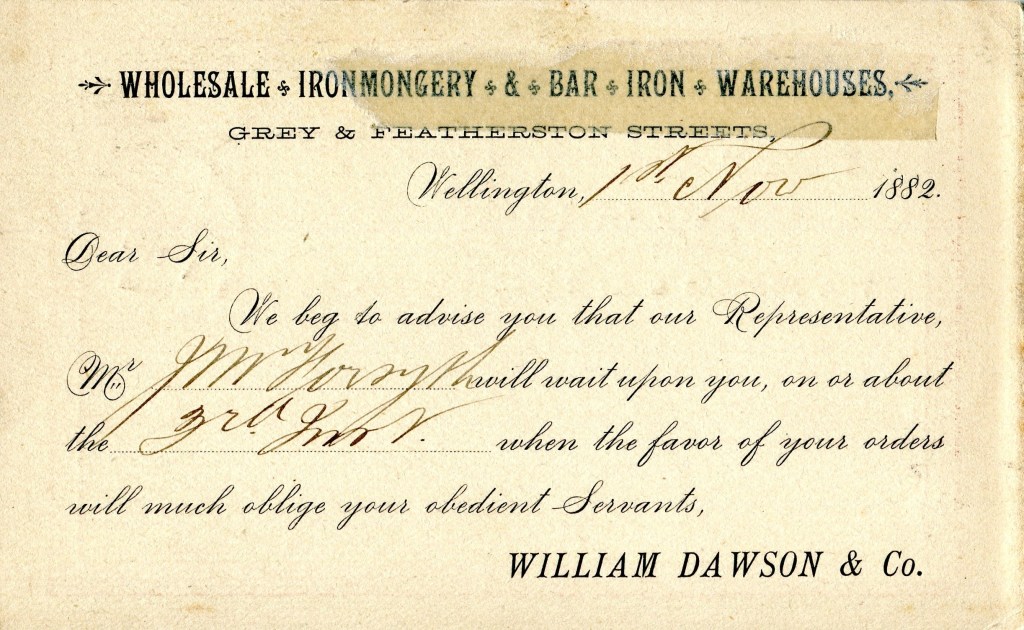 WHOLESALE IRONMONGERY & BAR IRON WAREHOUSES,
GREY & FEATHERSTON STREETS,
Wellington, 1st Nov 1882.
Dear Sir,
We beg to advise you that our Representative,
Mr Forsyth will wait upon you, on or about
the 3rd Inst. when the favor of your orders
will much oblige your obedient Servants,
WILLIAM DAWSON & Co.